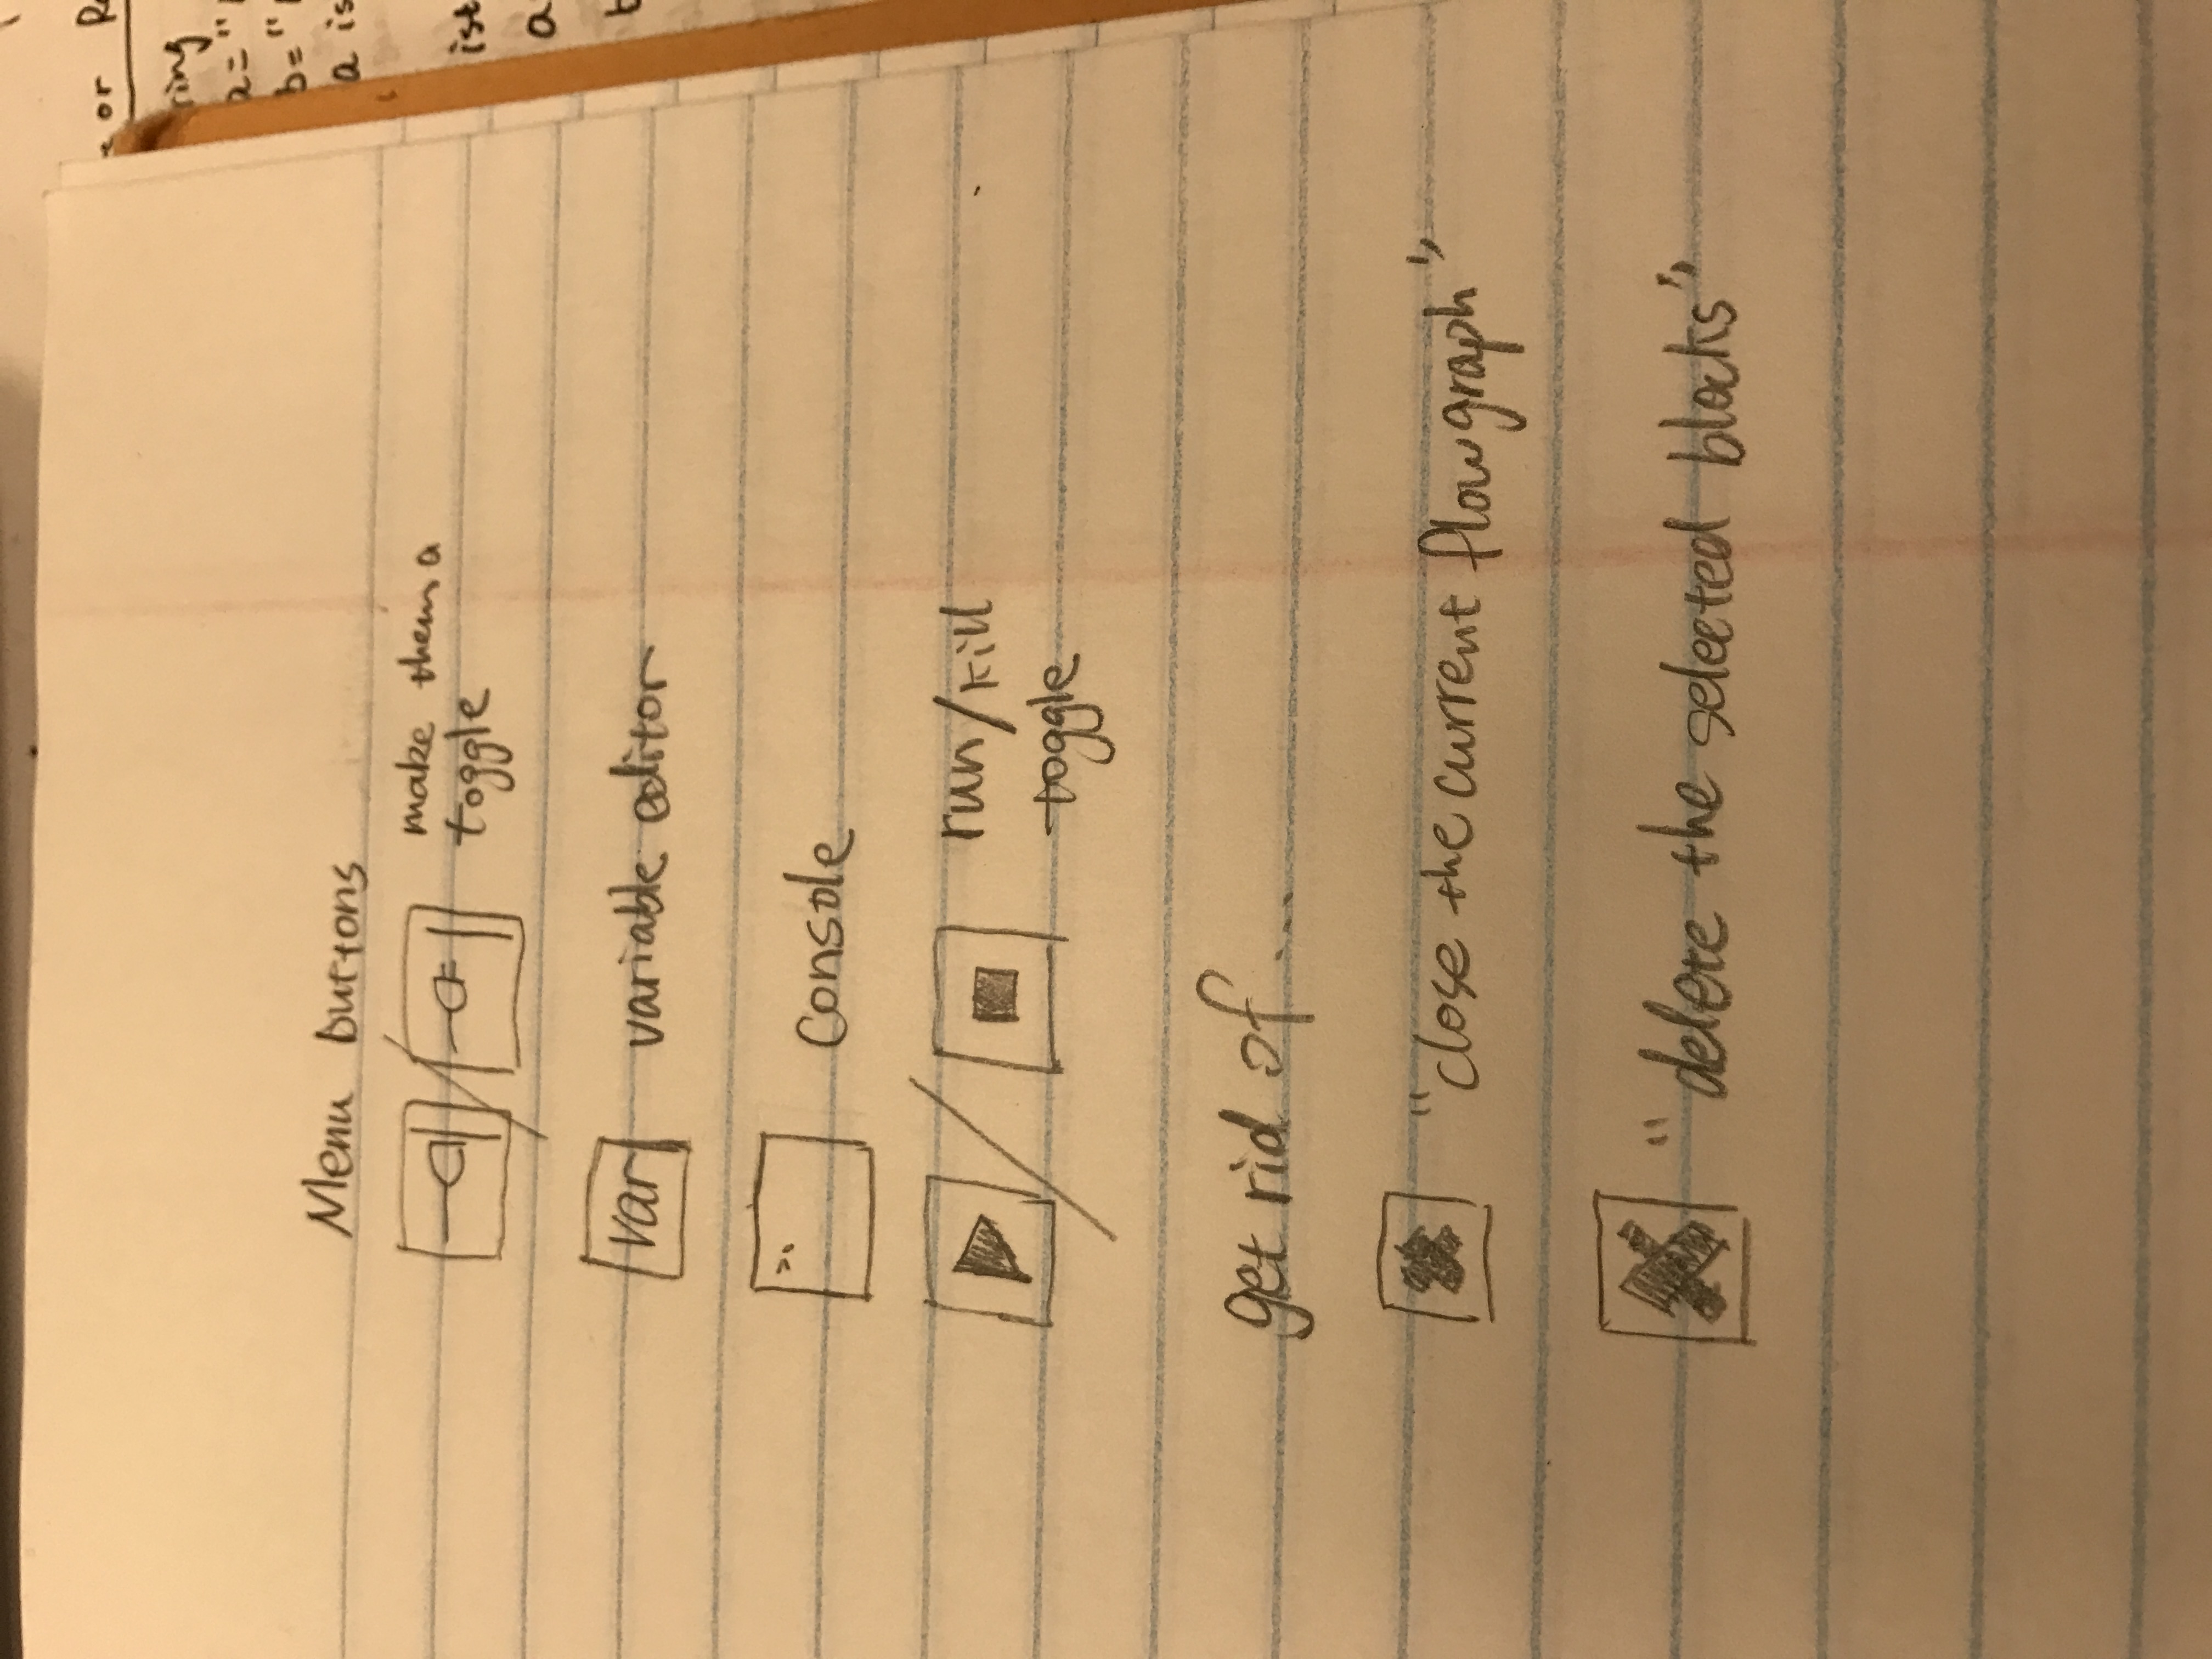 Menu buttons
make them a
toggle
var variable editor
>. Console
run/kill
toggle
get rid of ...
"close the current flowgraph"
"delete the selected blocks"
or
ring
a="
b="
a is
ist
a